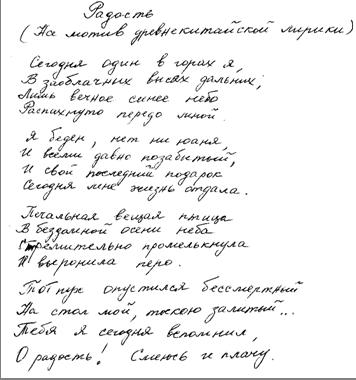 Радость
(На мотив древнекитайской лирики)
Сегодня один в горах я,
В заоблачных высях дальних;
Лишь вечное синее небо
Распахнуто передо мной.
Я беден, нет ни юаня
И всеми давно позабытый,
И свой последний подарок
Сегодня мне жизнь отдала.
Печальная вещая птица
В бездомной осени неба
Стремительно промелькнула
И выронила перо.
Тот пух опустился бессмертный
На стол мой, тоскою залитый...
Тебя я сегодня вспомнил,
О радость! Смеюсь и плачу.